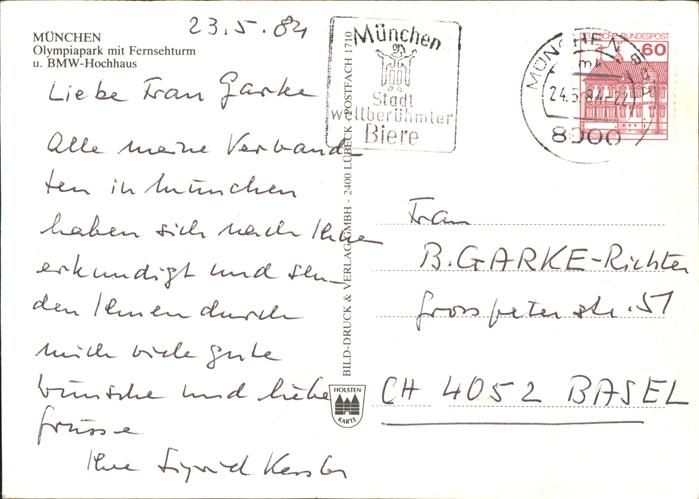 23.5.84
MÜNCHEN
Olympiapark mit Fernsehturm
u. BMW-Hochhaus
Liebe Frau Garke
Alle meine Verwand-
ten in München
haben sich nach Ihnen
erkundigt und sen-
den Ihnen durch
mich viele gute
Wünsche und liebe
Grüsse
Ihre Sigrid Kessler
BILD-DRUCK & VERLAG GMBH - 2400 LÜBECK - POSTFACH 1710
HOLSTEN
KARTE
München
Stadt
weltberühmter
Biere
MÜNCHEN
24.5.84-22
8000
DEUTSCHE BUNDESPOST
60
Frau
B. GARKE-Richter
Grosspeterstr. 51
CH 4052 BASEL